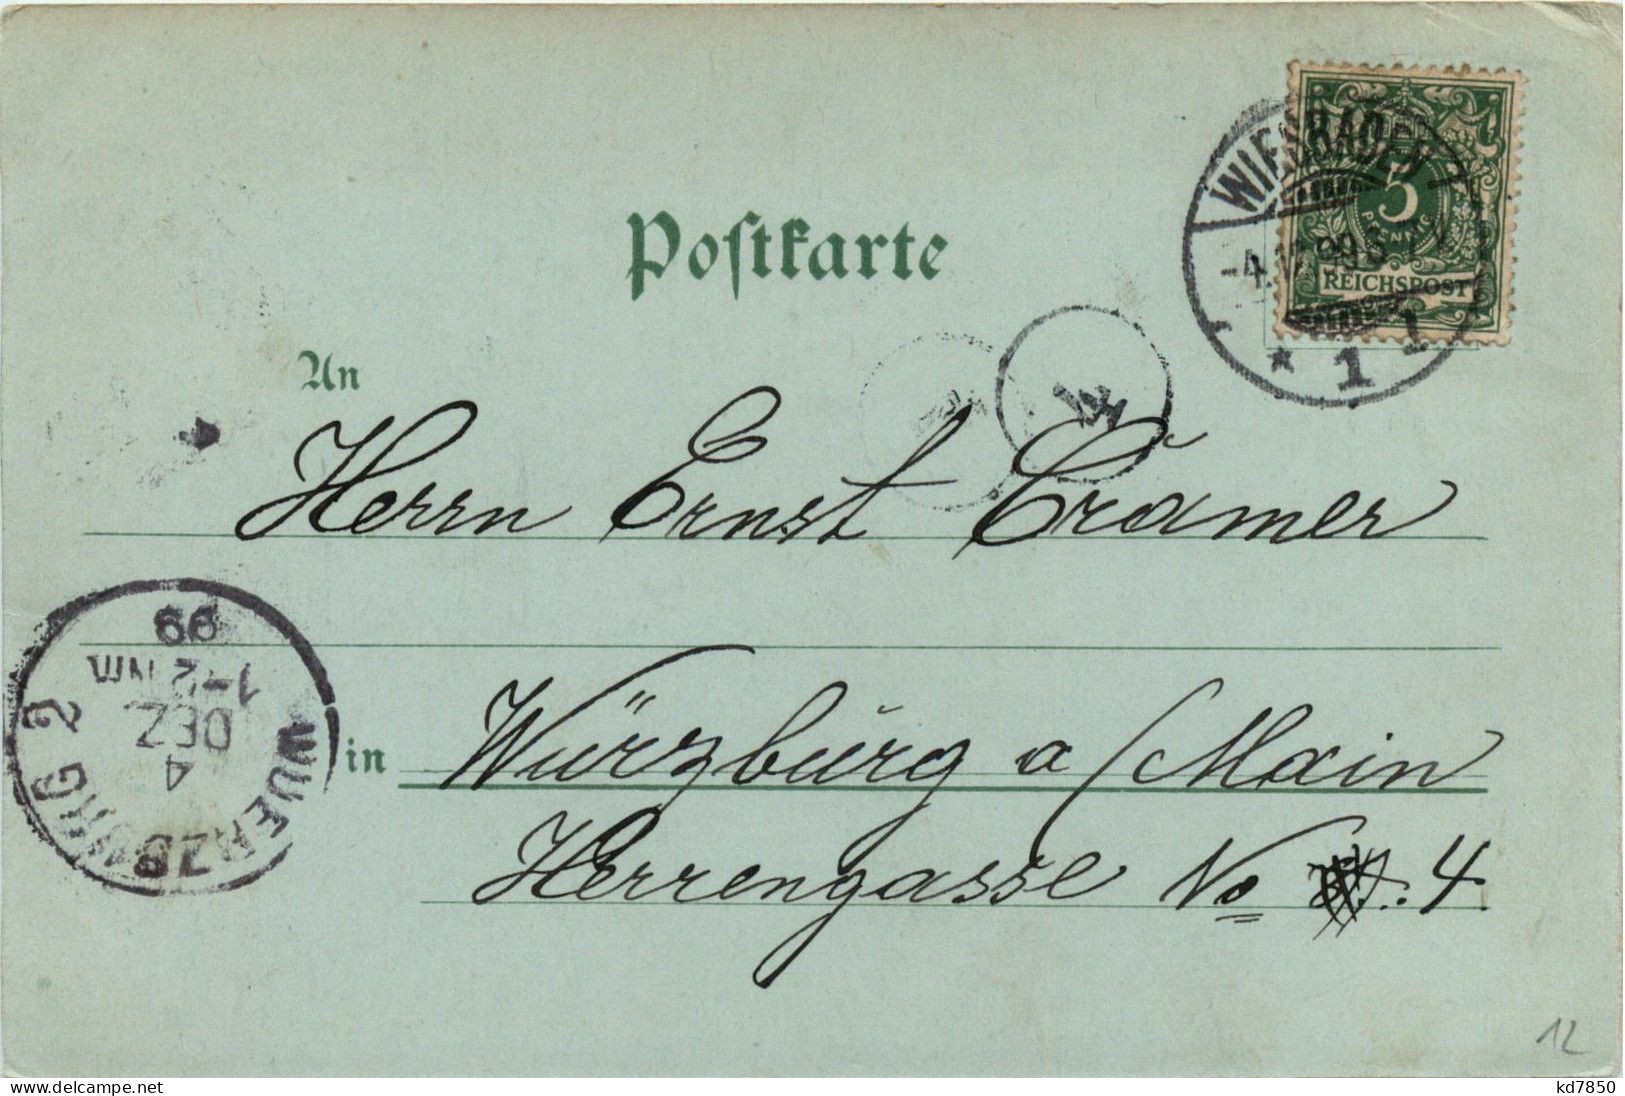 WIESBADEN
5
PFENNIG
REICHSPOST
-4.12.99.6-7V
* 1 1
Postkarte
An
14
Herrn Ernst Cramer
in Würzburg a/Main
Herrengasse No 4.
WUERZBURG 2
4
DEZ
1-2 NM
99
12
kd7850